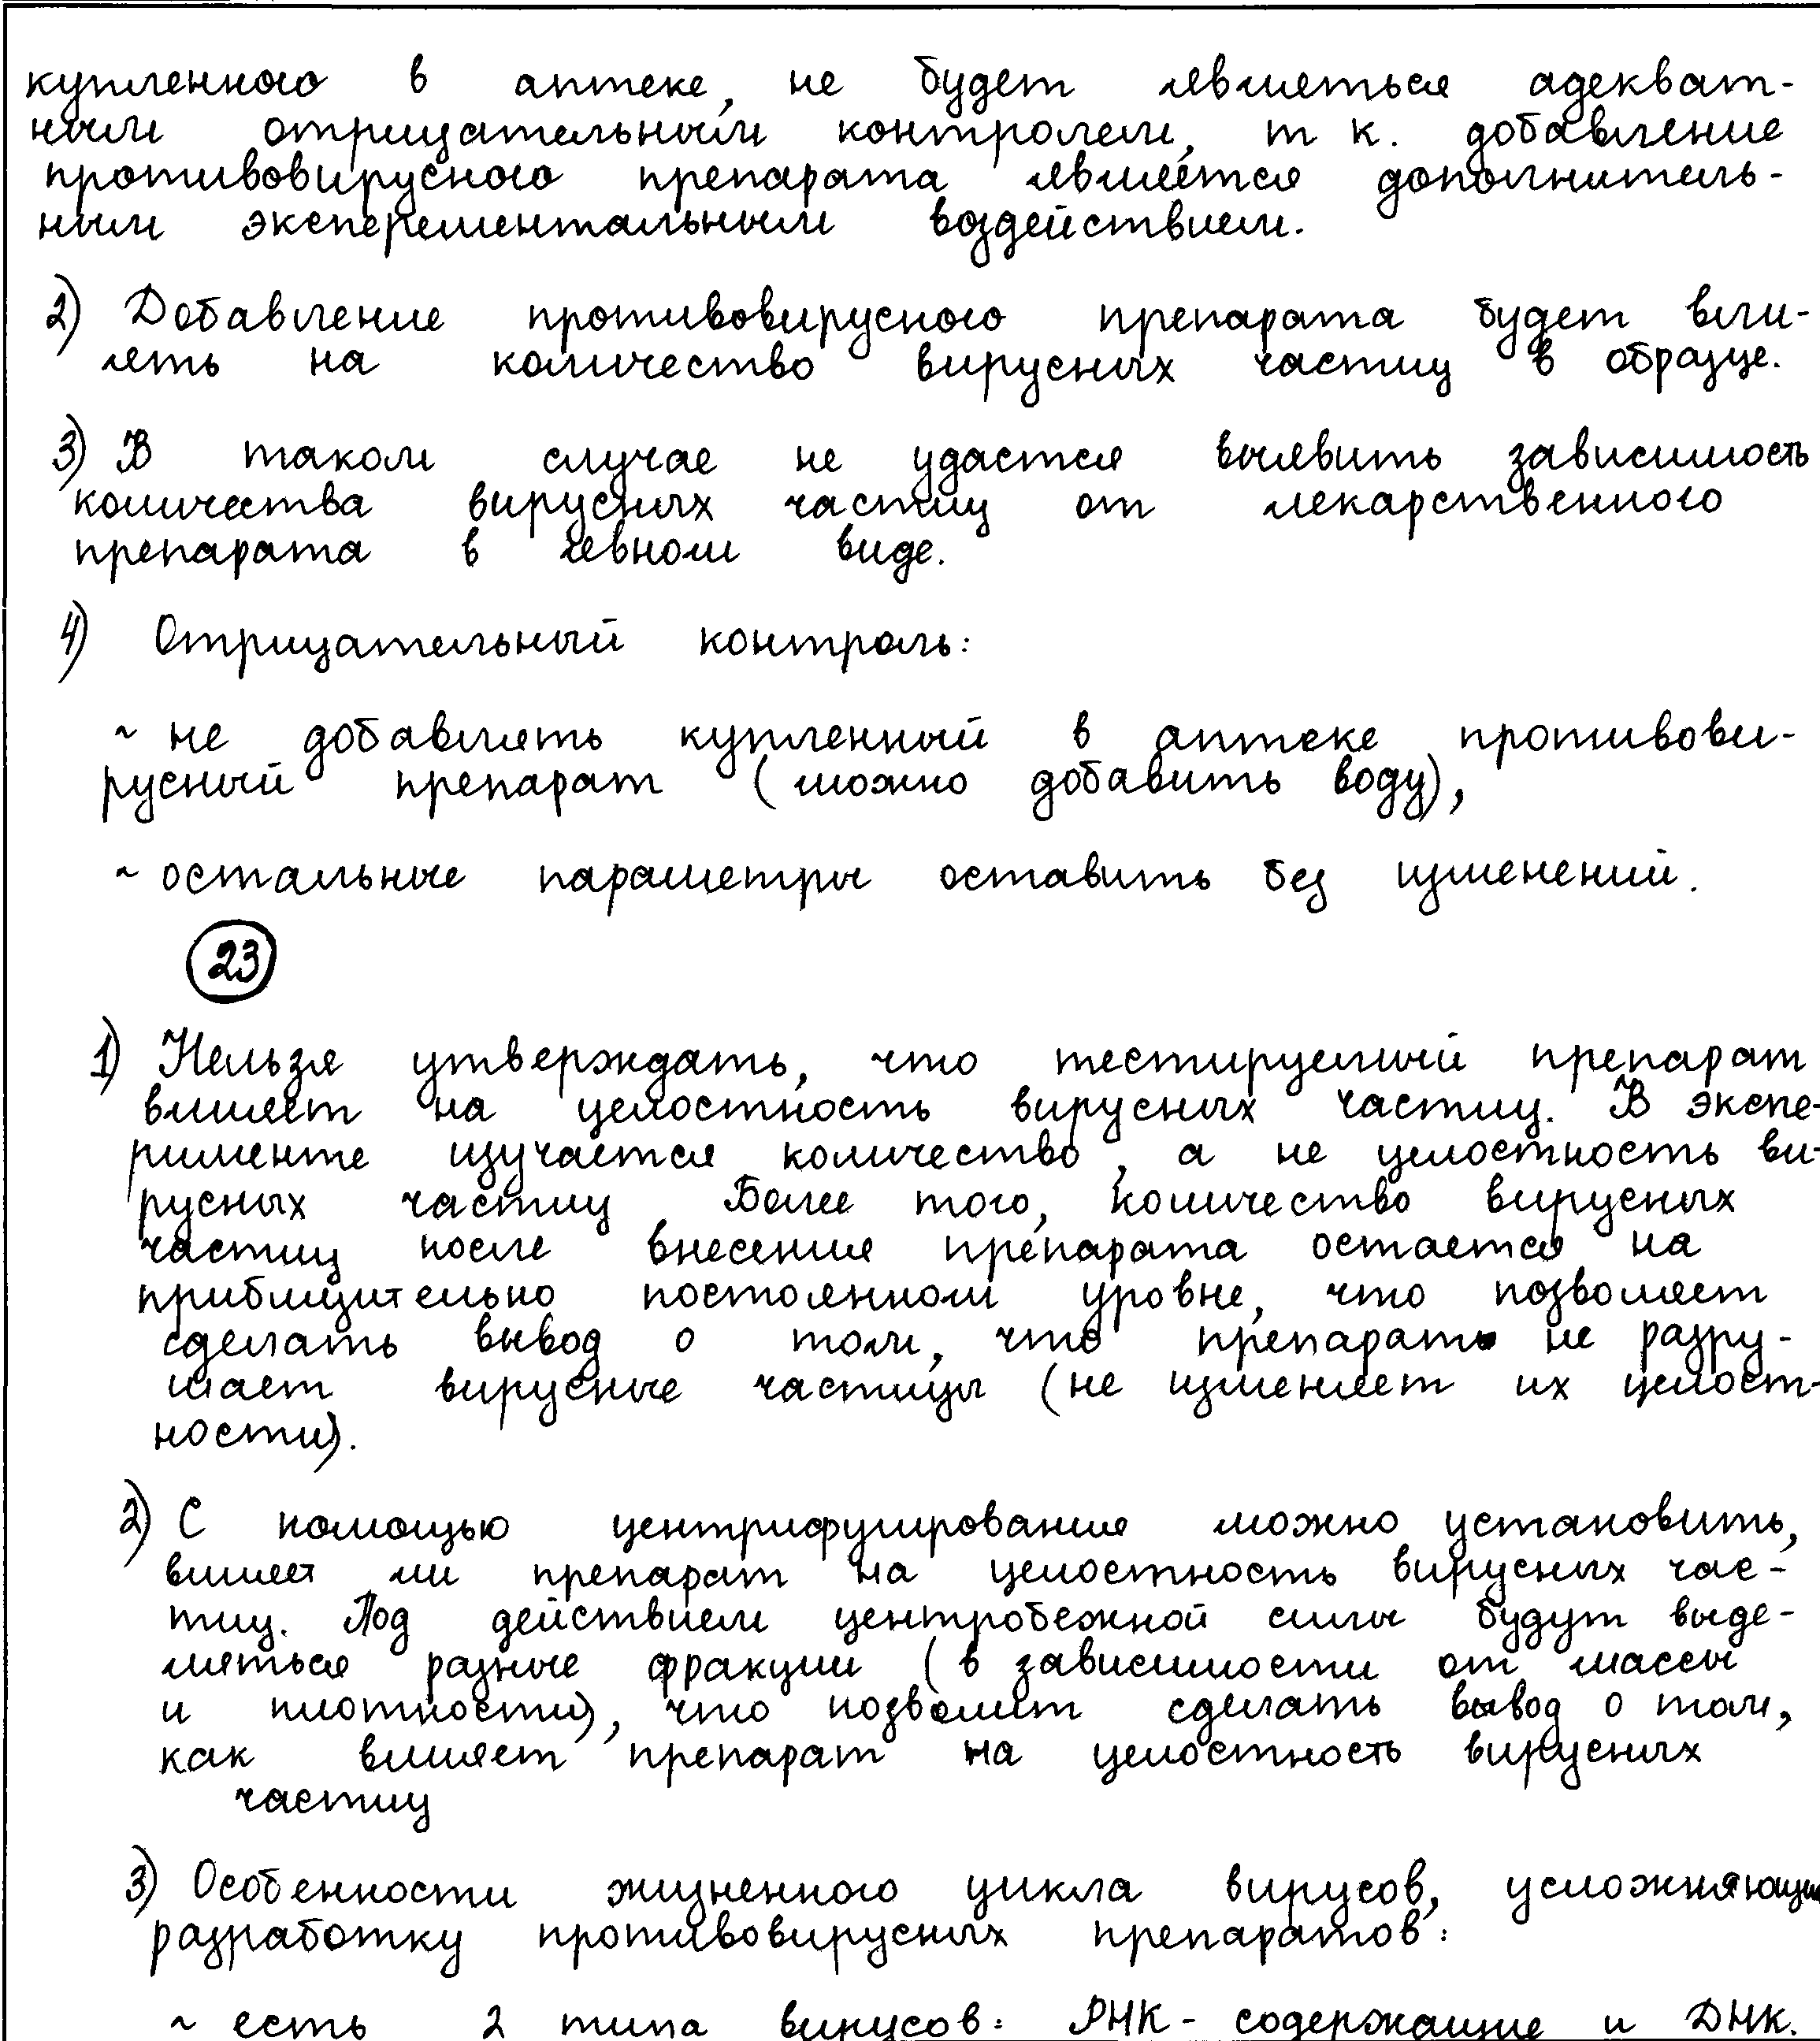 купленного в аптеке, не будет являеться адекват-
ным отрицательным контролем, т к. добавление
противовирусного препарата является дополнитель-
ным эксперементальным воздействием.
2) Добавление противовирусного препарата будет вли-
ять на количество вирусных частиц в образце.
3) В таком случае не удастся выявить зависимость
количества вирусных частиц от лекарственного
препарата в явном виде.
4) Отрицательный контроль:
~ не добавлять купленный в аптеке противови-
русный препарат (можно добавить воду),
~ остальные параметры оставить без изменений.
23
1) Нельзя утверждать, что тестируемый препарат
влияет на целостность вирусных частиц. В экспе-
рименте изучается количество, а не целостность ви-
русных частиц Более того, количество вирусных
частиц после внесения препарата остается на
приблизительно постоянном уровне, что позволяет
сделать вывод о том, что препарат не разру-
шает вирусные частицы (не изменяет их целост-
ности).
2) С помощью центрифугирования можно установить,
влияет ли препарат на целостность вирусных час-
тиц. Под действием центробежной силы будут выде-
ляться разные фракции (в зависимости от массы
и плотности), что позволит сделать вывод о том,
как влияет препарат на целостность вирусных
частиц
3) Особенности жизненного цикла вирусов, усложняющие
разработку противовирусных препаратов:
~ есть 2 типа вирусов: РНК-содержащие и ДНК.